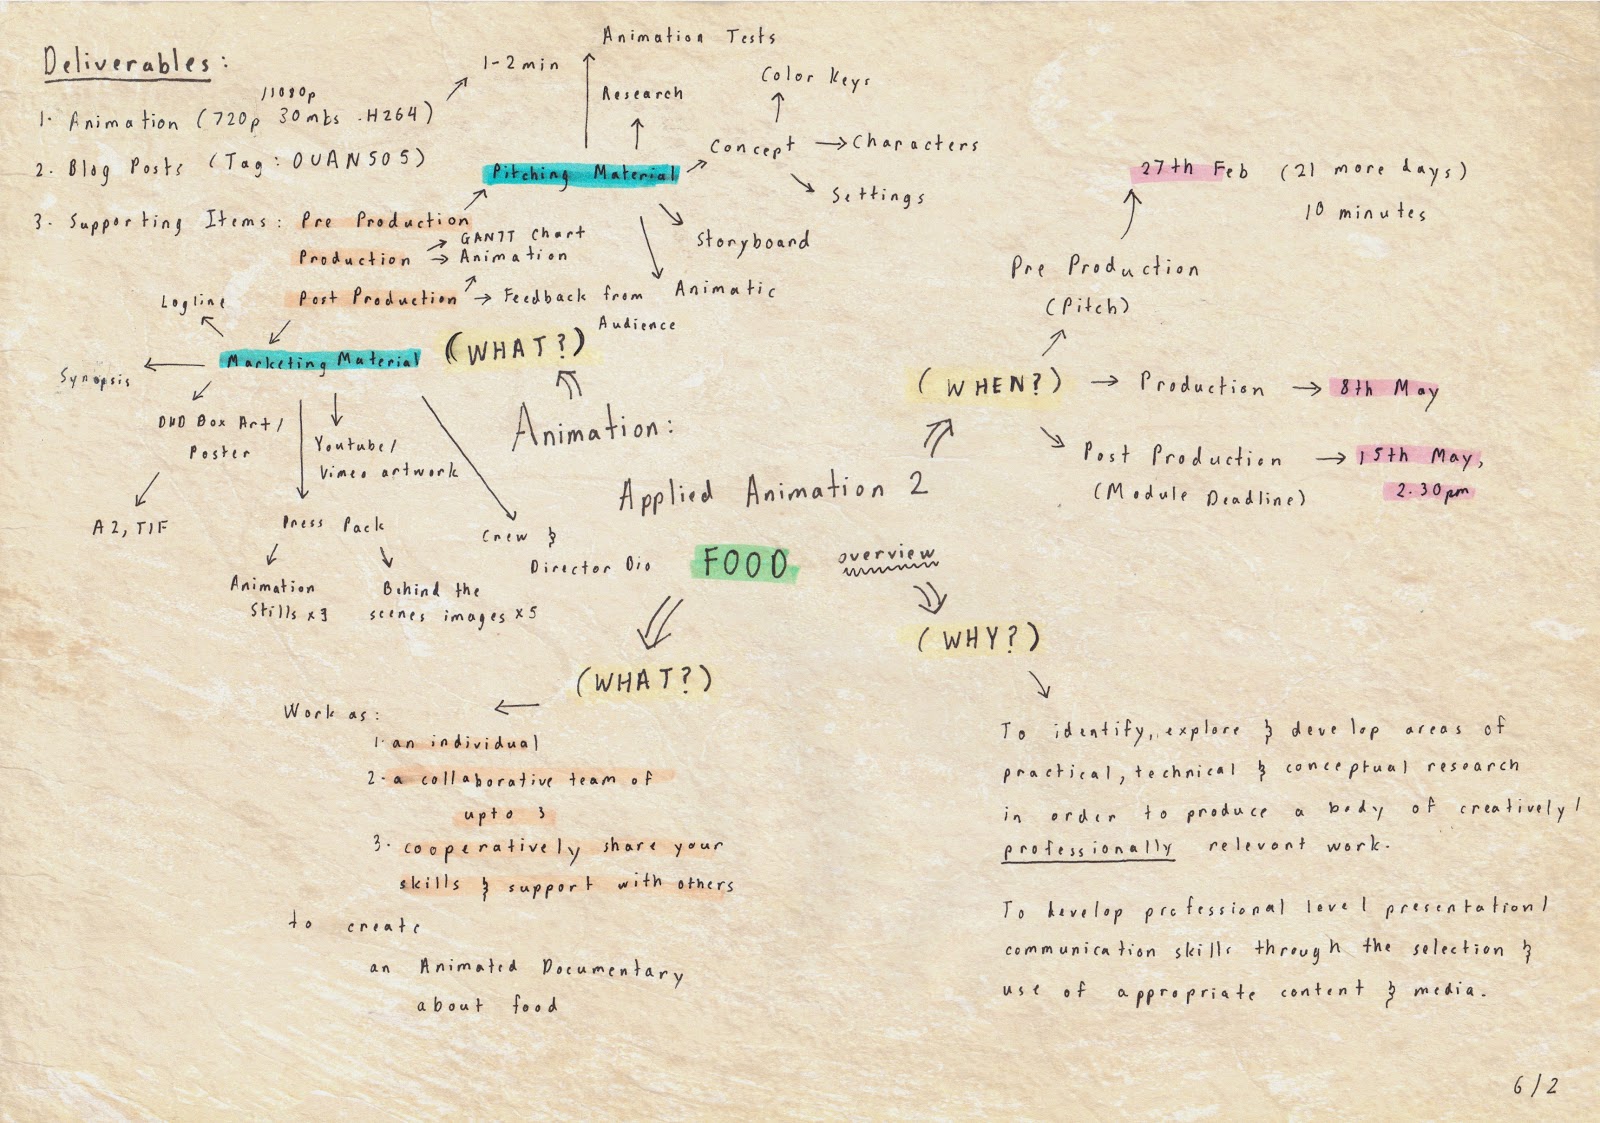 Deliverables:
1. Animation (720p /1080p 30mbs .H264)
1-2 min
2. Blog Posts (Tag: OUAN505)
3. Supporting Items: Pre Production
Production
GANTT Chart
Animation
Post Production
Feedback from
Audience
Pitching Material
Animation Tests
Research
Concept
Color Keys
Characters
Settings
Storyboard
Animatic
Marketing Material
Logline
Synopsis
DVD Box Art/
Poster
A2, TIF
Youtube/
Vimeo artwork
Press Pack
Animation
Stills x3
Behind the
scenes images x5
Crew &
Director Bio
(WHAT?)
Animation:
Applied Animation 2
FOOD
overview
(WHEN?)
Pre Production
(Pitch)
27th Feb (21 more days)
10 minutes
Production
8th May
Post Production
(Module Deadline)
15th May,
2.30pm
(WHAT?)
Work as:
1. an individual
2. a collaborative team of
upto 3
3. cooperatively share your
skills & support with others
to create
an Animated Documentary
about food
(WHY?)
To identify, explore & develop areas of
practical, technical & conceptual research
in order to produce a body of creatively/
professionally relevant work.
To develop professional level presentation/
communication skills through the selection &
use of appropriate content & media.
6/2